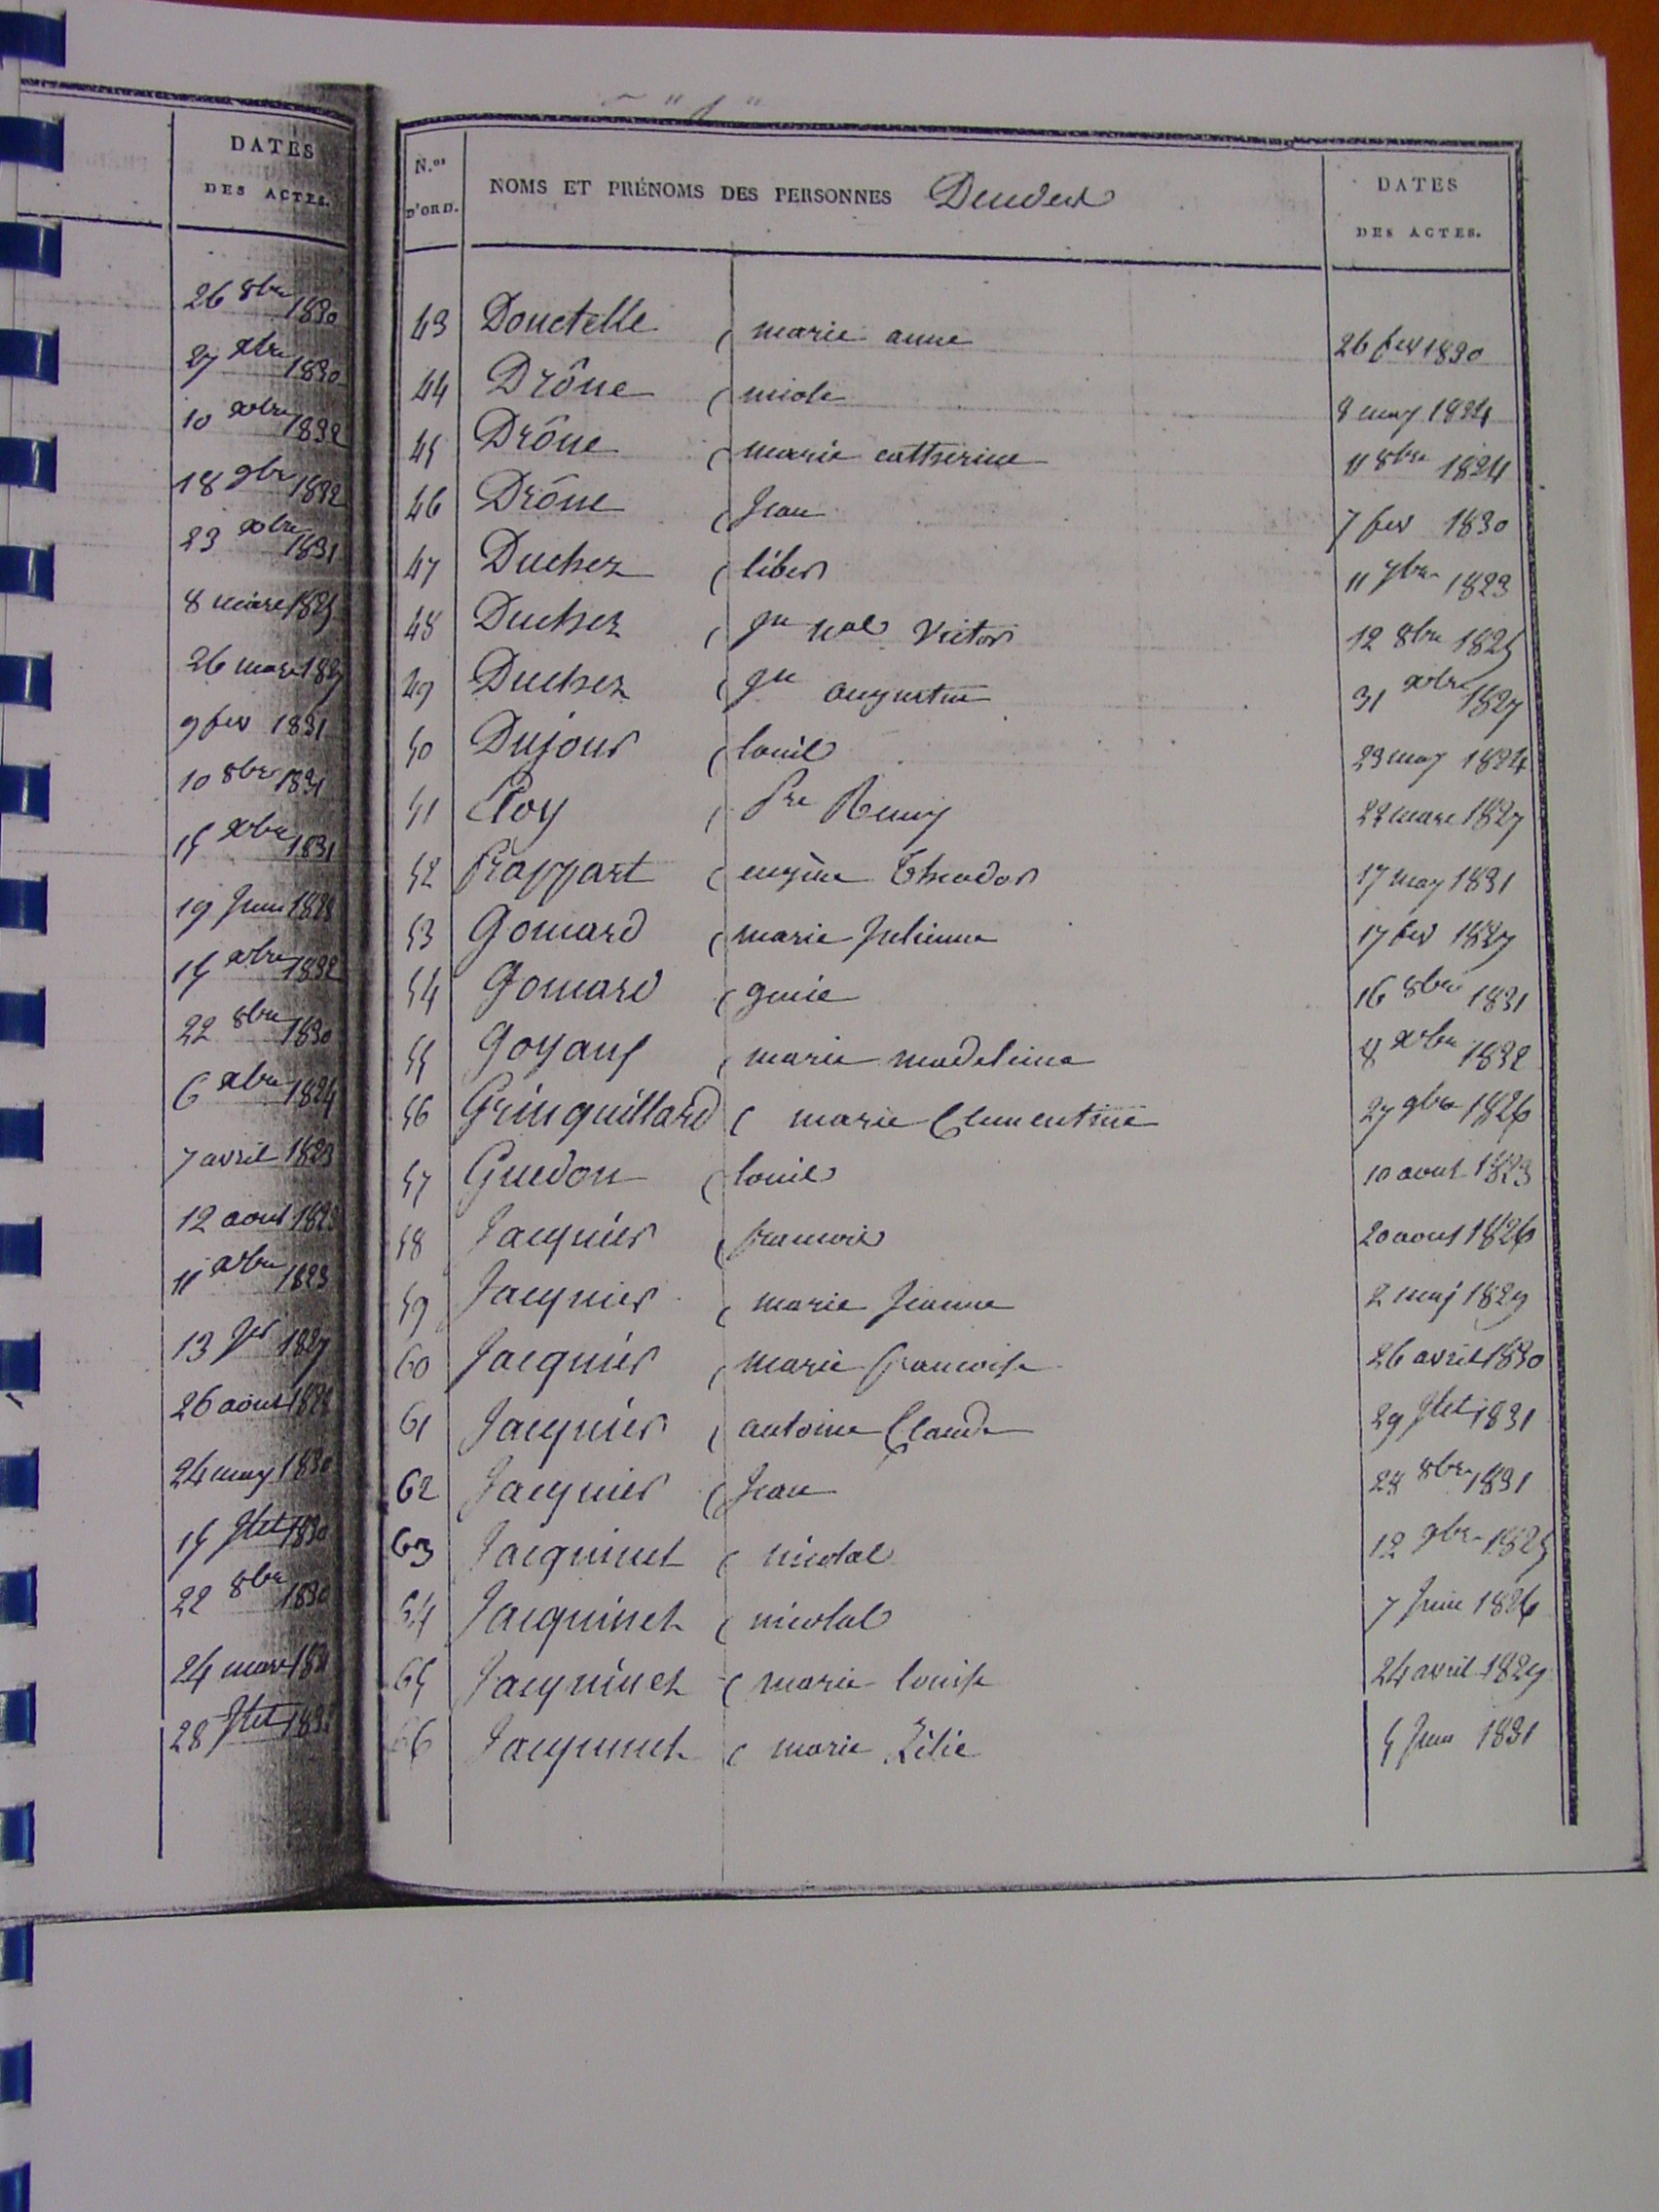 DATES
DES ACTES.
26 8bre 1830
27 xbre 1830
10 xbre 1832
18 9bre 1832
23 xbre 1831
8 mars 1825
26 mars 1827
9 fev 1831
10 8bre 1831
15 xbre 1831
19 Juin 1828
15 xbre 1832
22 8bre 1830
6 xbre 1824
7 avril 1823
12 aout 1823
11 xbre 1823
13 Jer 1827
26 aout
24 may 1830
15 Jlet 1830
22 8bre 1830
24 mars
28 Jlet
N.os
D'ORD.
NOMS ET PRÉNOMS DES PERSONNES Deudes
DATES
DES ACTES.
43 Douctelle ( marie anne 26 fev 1830
44 Drône ( nicole 8 may 1824
45 Drône ( marie catherine 11 8bre 1824
46 Drône ( Jean 7 fev 1830
47 Duchez ( liber 11 7bre 1823
48 Duchez ( Jn Nas Victor 12 8bre 1825
49 Duchez ( Jn augustin 31 xbre 1827
50 Dujour ( louis 23 may 1824
51 Eloy ( Pre Remy 22 mars 1827
52 frappart ( eugène Theodor 17 may 1831
53 Gomard ( marie Julienne 17 fev 1827
54 Gomard ( 16 8bre 1831
55 Goyaux ( marie madeleine 8 xbre 1832
56 Grinquillard ( marie Clementine 27 9bre 1826
57 Guedon ( louis 10 aout 1823
58 Jacquier ( francois 20 aout 1826
59 Jacquier ( marie Jeanne 2 may 1829
60 Jacquier ( marie francoise 26 avril 1830
61 Jacquier ( antoine Claude 29 Jlet 1831
62 Jacquier ( Jean 28 8bre 1831
63 Jacquinet ( nicolas 12 9bre 1825
64 Jacquinet ( nicolas 7 Juin 1826
65 Jacquinet ( marie louise 24 avril 1829
66 Jacquinet ( marie Zélie 5 Juin 1831